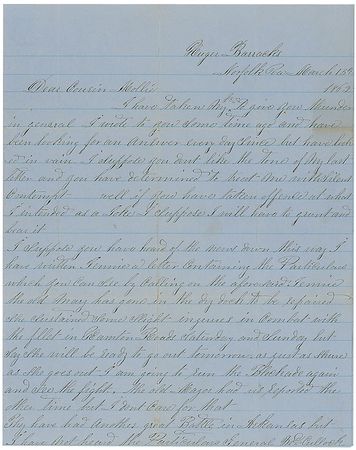 Huger Barracks
Norfolk Va March 13th
Dear Cousin Mollie 1862
I have taken my to give you thunder
in general I wrote to you some time ago and have
been looking for an answer every day since but have looked
in vain I suppose you dont like the tone of my last
letter and you have determined to treat me with silent
Contempt well if you have taken offence at what
I intended as a Joke I suppose I will have to grunt and
bear it
I suppose you have heard of the news down this way I
have written Jennie a letter Containing the Particulars
which you Can see by Calling on the aforesaid Jennie
the old has gone in the dry dock to be repaired
she sustained some slight injuries in Combat with
the fleet in Hamton Roads Saturday and Sunday but
they she will be ready to go out tomorrow as just as
as she goes out I am going to run the Blockade again
and see the fight. the old Major had us reported the
other time but I dont Care for that
they have had another great Battle in Arkansas but
I have not heard the Particulars General McCulloch